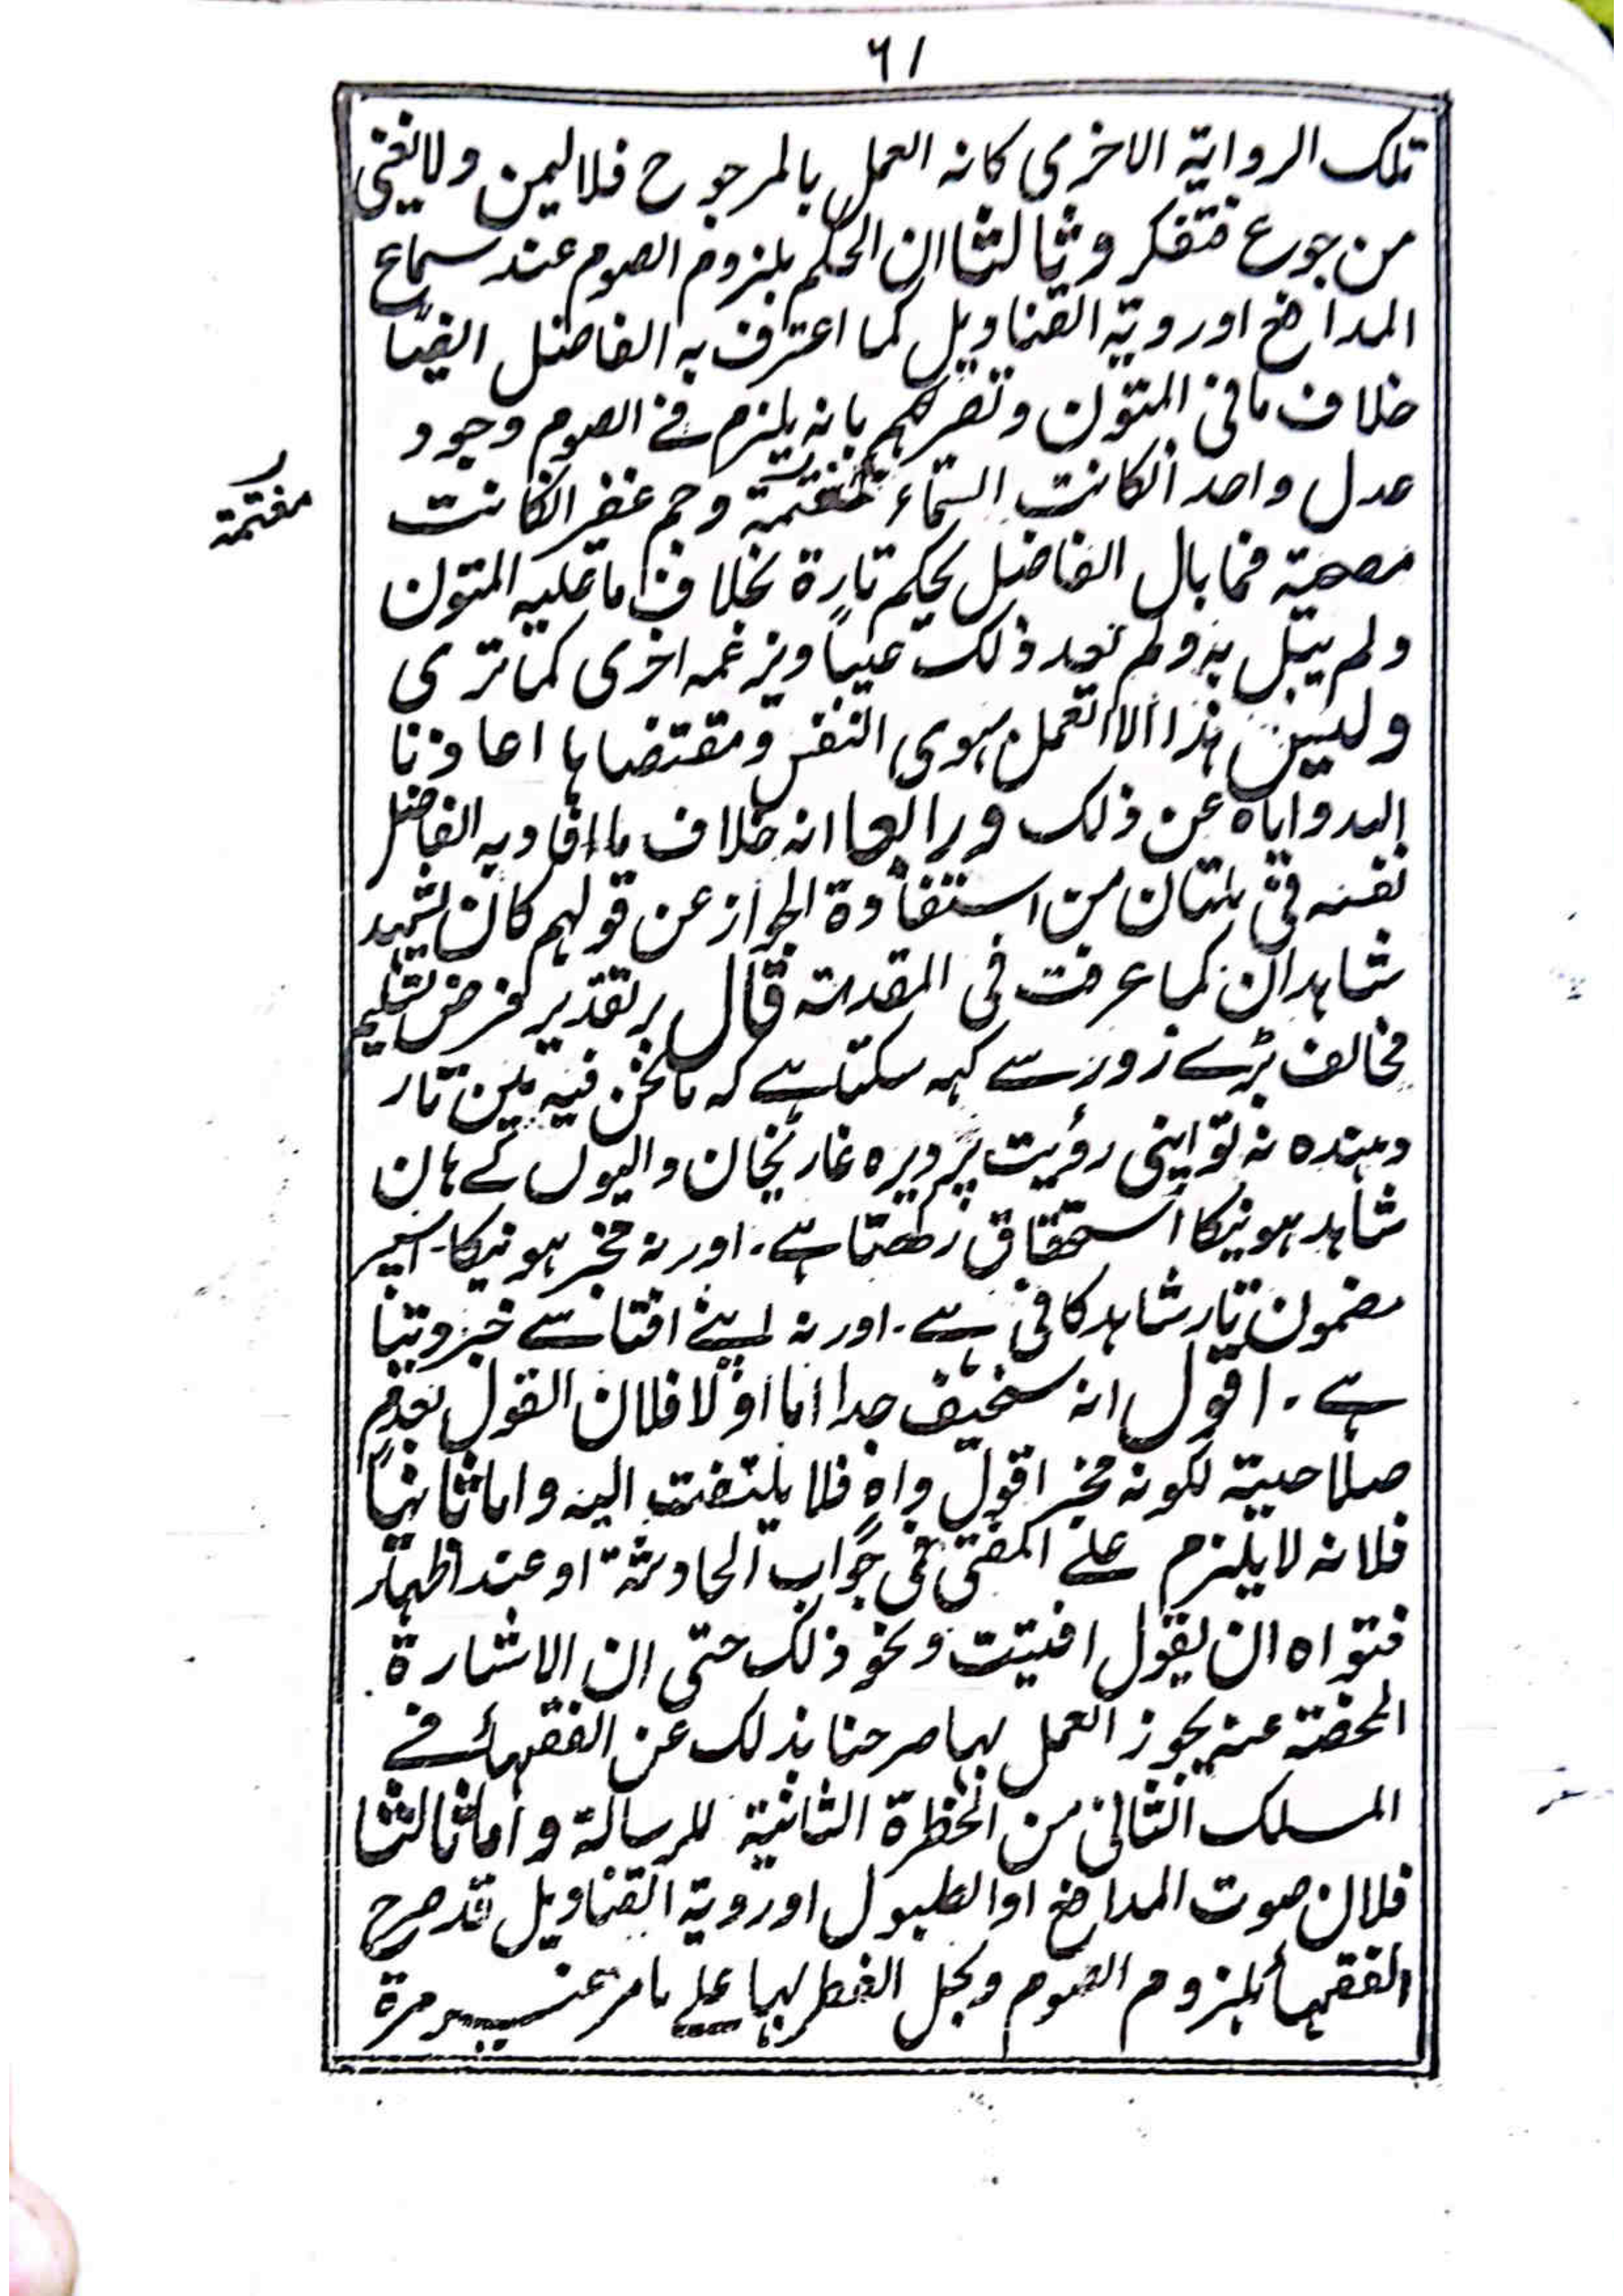 ٦١
تلك الرواية الاخرى كانه العمل بالمرجوح فلا ليمن ولا يغنى
من جوع فتفكر وثالثا ان الحكم بلزوم الصوم عند سماع
المدافع اورویة القناديل كما اعترف به الفاضل ايضًا
خلاف ما فى المتون وتصريحهم بانه يلزم فے الصوم وجود
عدل واحد انكانت السّماء متغيمة وجم غفير انكانت
مغتيمة
مصحية فما بال الفاضل يحكم تارة بخلاف ما عليه المتون
ولم يبل به ولم يعد ذلك عيبًا ويزعمه اخرى كما ترى
وليس هذا الا العمل بهوى النفس ومقتضاها اعاذنا
الله واياه عن ذلك ورابعا انه خلاف ما افاد به الفاضل
نفسه فى ملتان من استفادة الجواز عن قولهم كان يشهد
شاهدان كما عرفت فى المقدمة قال بر تقدير فرض تسليم
مخالف بڑے زور سے کہہ سکتا ہے کہ مانحن فیہ مین تار
دہندہ نہ تو اپنی رؤیت پر دیرہ غازیخان والیوں کے ہان
شاہد ہونیکا استحقاق رکھتا ہے۔ اور نہ مخبر ہونیکا۔ اسپر
مضمون تار شاہد کافی ہے۔ اور نہ اپنے افتا سے خبر دیتا
ہے۔ اقول انه سخيف جدا اما اوّلا فلان القول بعدم
صلاحيته لكونه مخبرا قول واهٍ فلا يلتفت اليه واما ثانيًا
فلانه لا يلزم علے المفتى فى جواب الحادثة او عند اظهار
فتواه ان يقول افتيت ونحو ذلك حتى ان الاشارة
المحضة عنه يجوز العمل بها صرحنا بذلك عن الفقهاء فے
المسلك الثانى من الخطرة الثانية للرسالة واما ثالثا
فلان صوت المدافع او الطبول اورویة القناديل قد صرح
الفقهاء بلزوم الصوم وبحل الفطر بها علے ما مر غير مرة